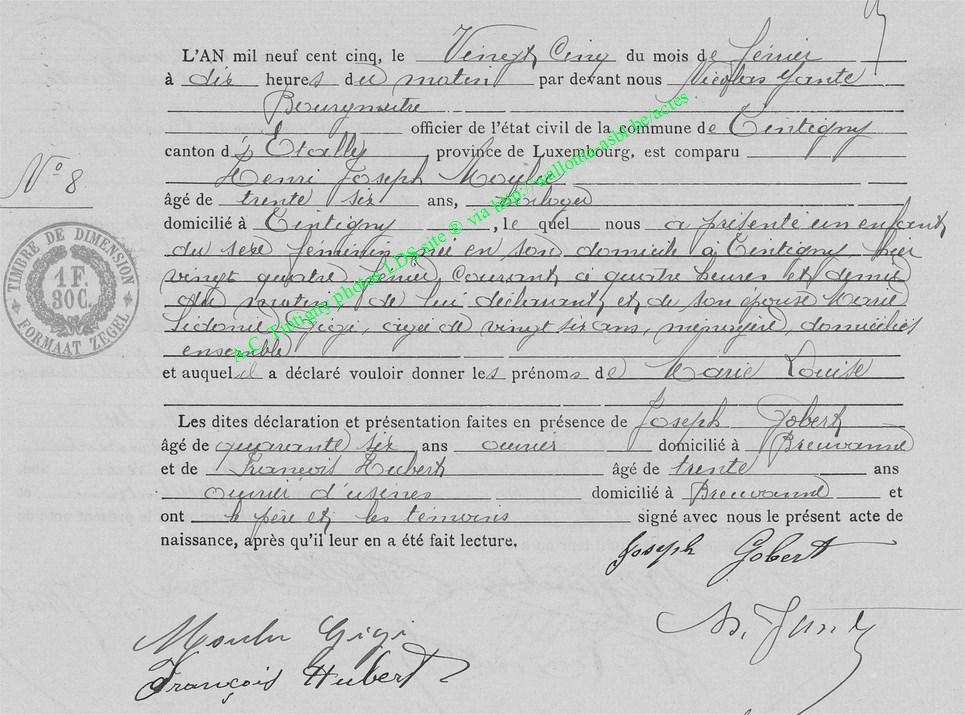 L'AN mil neuf cent cinq, le Vingt Cinq du mois de février
à dix heures du matin par devant nous Nicolas
Bourgmestre
officier de l'état civil de la commune de Tintigny
canton d' Etalle province de Luxembourg, est comparu
Henri Joseph
N° 8
âgé de trente six ans,
domicilié à Tintigny, le quel nous a présenté un enfant
du sexe féminin né en son domicile à Tintigny hier
vingt quatre février Courant, à quatre heures et demie
du matin, de lui déclarant, et de son épouse Marie
Sidonie Gigi, agée de vingt six ans, ménagère, domiciliés
ensemble
et auquel il a déclaré vouloir donner les prénoms de Marie Louise
Les dites déclaration et présentation faites en présence de Joseph Gobert
âgé de quarante six ans ouvrier domicilié à Breuvanne
et de François Hubert âgé de trente ans
ouvrier d'usines domicilié à Breuvanne et
ont le père et les témoins signé avec nous le présent acte de
naissance, après qu'il leur en a été fait lecture.
Joseph Gobert
Gigi
François Hubert
TIMBRE DE DIMENSION
1 F.
30 C.
FORMAAT ZEGEL
A.C. Tintigny photos LDS site © via http://wallonia.asbl.be/actes